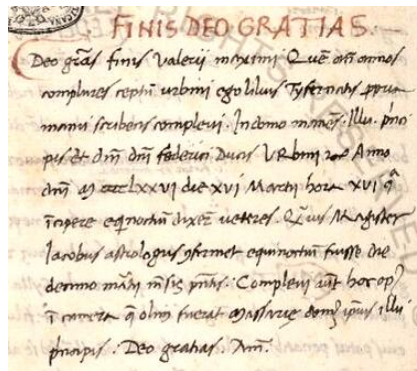 FINIS DEO GRATIAS.
Deo grãs finis Valerii maximi Quẽ añ annos
complures ceptũ urbini ego lilius Tyfernatis ꝓpria
manu scribens complevi. In domo maneñ. Illu. prĩci
pis et dñi dñi federici Ducis Urbini Anno
dñi M LXXVI die XVI Martii hora XVI
ĩcipere equinoctiũ dixeř veteres. Quis Magister
Iacobus astrologus ꝯfirmet equinoctiũ fuisse die
decimo mãrtii mẽsis pñtis. Complevi hoc opꝰ
ĩ camera q̃ olim fuerat Massarie ipsius illu
prĩcipis. Deo gratias Amẽ.